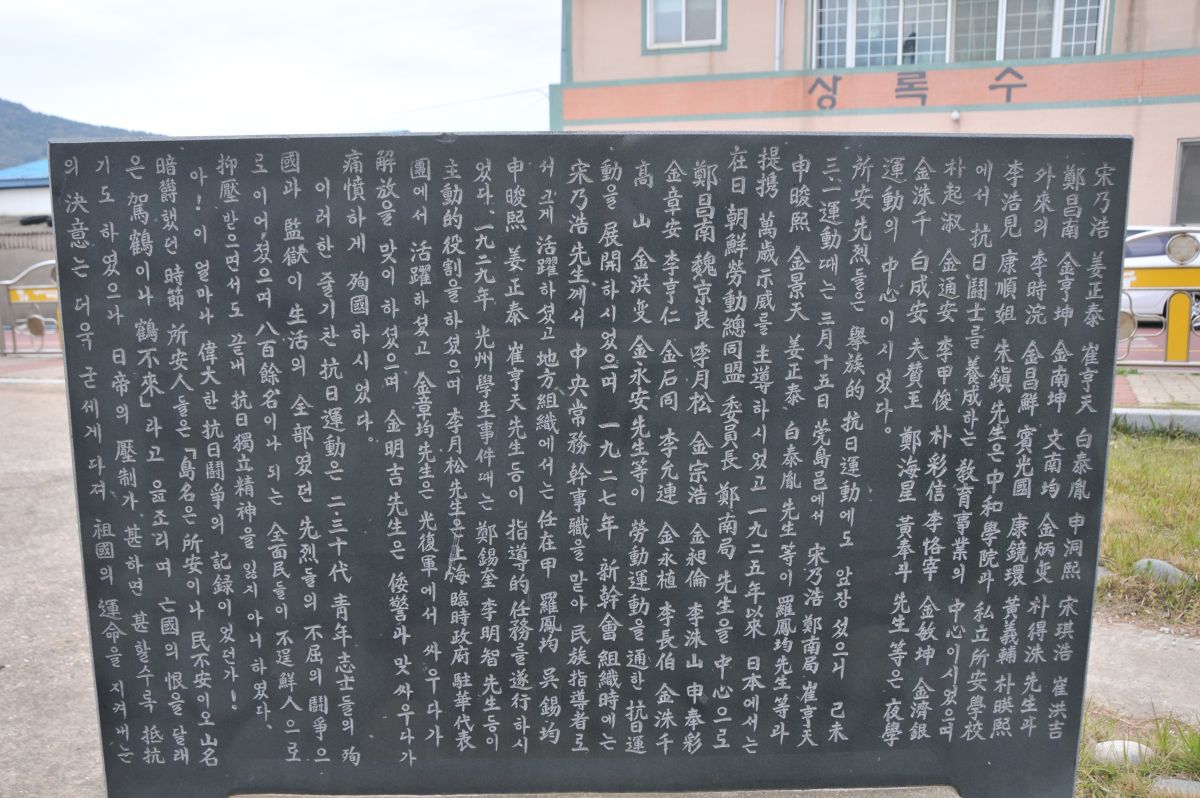 상록수
宋乃浩 姜正泰 崔亨天 白泰胤 申洞熙 宋琪浩 崔洪吉
鄭昌南 金亨坤 金南坤 文南均 金炳燮 朴得洙 先生과
外來의 李時浣 金昌鮮 賓光國 康鏡環 黃義輔 朴暎熙
李浩見 康順姐 朱鎭 先生은 中和學院과 私立所安學校
에서 抗日鬪士를 養成하는 敎育事業의 中心이시었으며
朴起淑 金通安 李甲俊 朴彩信 李恪宰 金敏坤 金濟銀
金洙千 白成安 夫贊王 鄭海星 黃奉斗 先生等은 夜學
運動의 中心이시었다.
所安先烈들은 擧族的 抗日運動에도 앞장 섰으니 己未
三.一運動때는 三月十五日 莞島邑에서 宋乃浩 鄭南局 崔亨天
申晙熙 金景天 姜正泰 白泰胤 先生等이 羅鳳均先生等과
提携 萬歲示威를 主導하시었고 一九二五年以來 日本에서는
在日 朝鮮勞動總同盟 委員長 鄭南局 先生을 中心으로
鄭昌南 魏京良 李月松 金宗浩 金昶倫 李洙山 申奉彩
金章安 李亨仁 金石同 李允連 金永植 李長伯 金洙千
高 山 金洪燮 金永安先生等이 勞動運動을 通한 抗日運
動을 展開하시었으며 一九二七年 新幹會 組織時에는
宋乃浩 先生께서 中央常務 幹事職을 맡아 民族指導者로
서 크게 活躍하셨고 地方組織에서는 任在甲 羅鳳均 吳錫均
申晙熙 姜正泰 崔亨天先生等이 指導的任務를遂行하시
었다. 一九二九年 光州學生事件때는 鄭錫奎 李明智 先生등이
主動的役割을하셨으며 李月松先生은 上海臨時政府駐華代表
團에서 活躍하셨고 金章均先生은 光復軍에서 싸우다가
解放을 맞이하셨으며 金明吉 先生은 倭警과 맞싸우다가
痛憤하게 殉國하시었다.
이러한 줄기찬 抗日運動은 二三十代 靑年志士들의 殉
國과 監獄이 生活의 全部였던 先烈들의 不屈의 鬪爭으
로 이어졌으며 八百餘名이나 되는 全面民들이 不逞鮮人으로
抑壓받으면서도 끝내 抗日獨立精神을 잃지 아니하였다.
아! 이 얼마나 偉大한 抗日鬪爭의 記錄이었던가!
暗欝했던 時節 所安人들은 「島名은 所安이나 民不安이오 山名
은 駕鶴이나 鶴不來」라고 읊조리며 亡國의 恨을 달래
기도 하였으나 日帝의 壓制가 甚하면 甚할수록 抵抗
의 決意는 더욱 굳세게 다져 祖國의 運命을 지켜내는